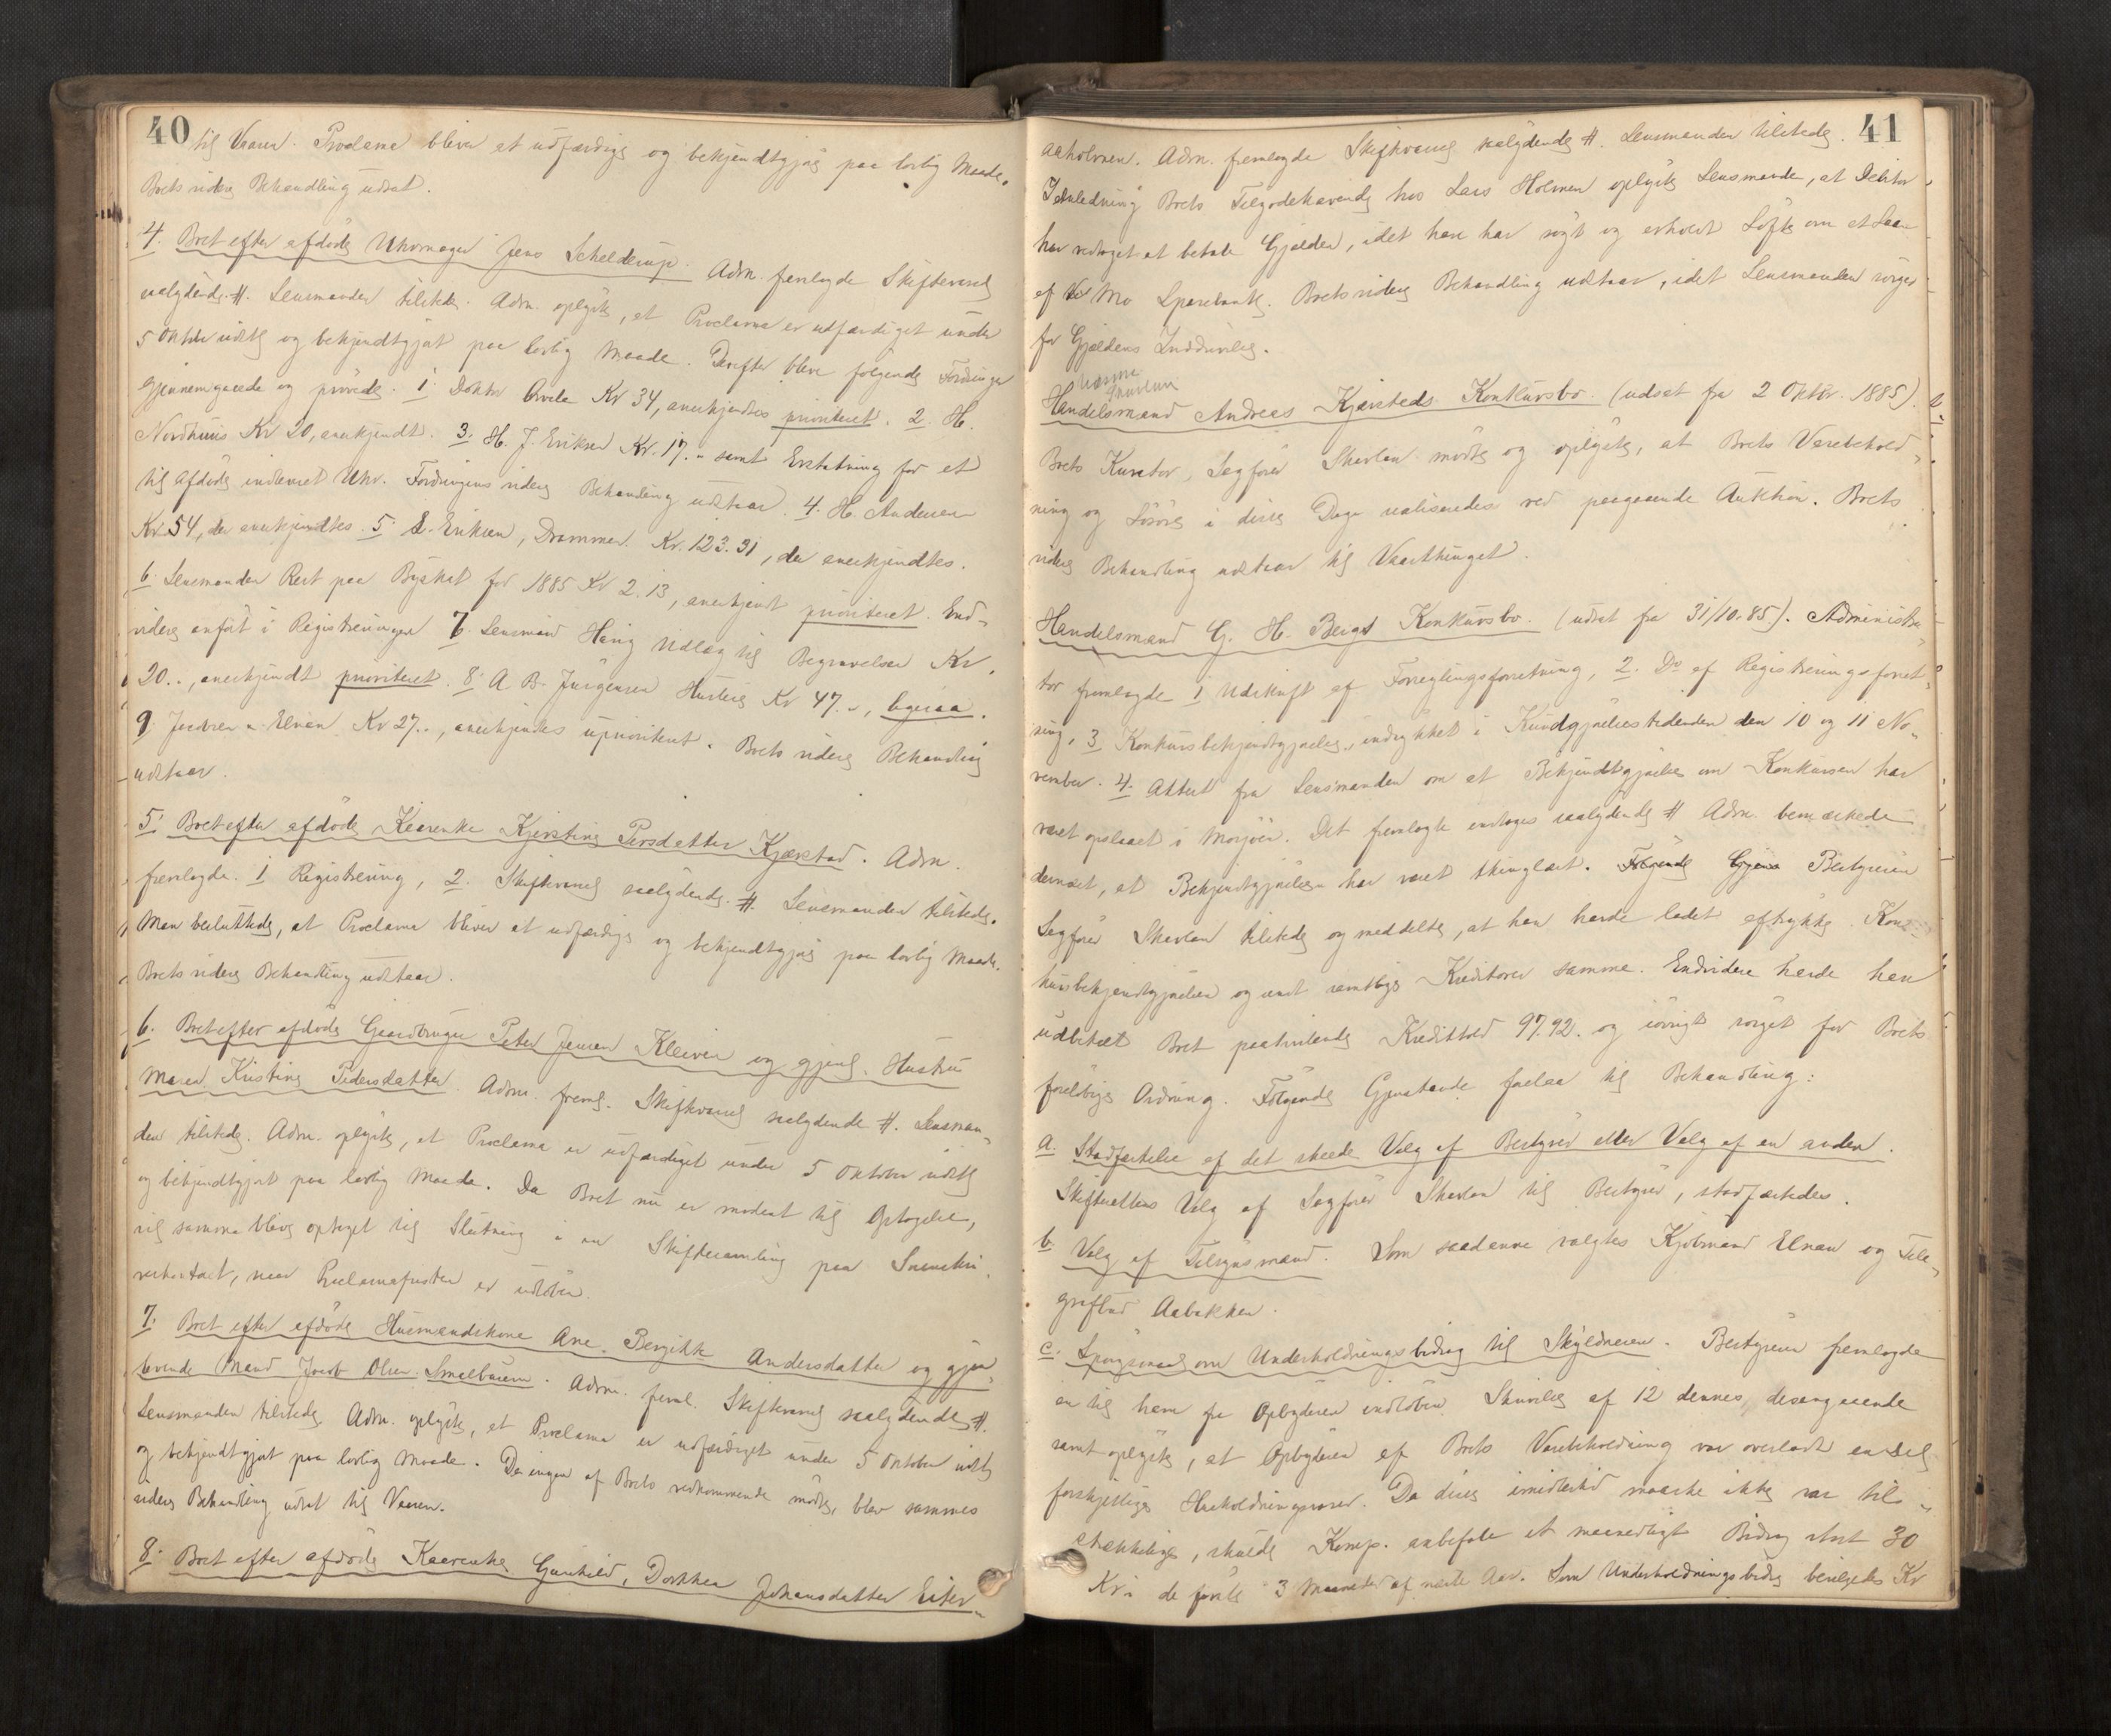 40
til Vaaren. Proclama bliver at udfærdige og bekjendtgjøre paa lovlig Maade.
Boets videre Behandling udsat.
4. Boet efter afdøde Uhrmager Jens Schelderup. Adm. fremlagde Skiftevarsel
saalydende #. Lensmanden tilstede. Adm. oplyste, at Proclama er udfærdiget under
5 Oktober sidstl. og bekjendtgjort paa lovlig Maade. Derefter bleve følgende Fordringer
gjennemgaaede og prøvede. 1. Doktor Kr 34, anerkjendtes prioriteret. 2. H.
Nordhuus Kr 20, anerkjendt. 3. H. J. Eriksen Kr. 17. - samt Erstatning for et
til Afdøde indleveret Uhr. Fordringens videre Behandling udstaar. 4. H. Andersen
Kr 54, der anerkjendtes. 5. E. Eriksen, Drammen. Kr. 123.31, der anerkjendtes.
6. Lensmanden Rest paa Byskat for 1885 Kr 2.13, anerkjendt prioriteret. End-
videre anført i Registreringen 7. Lensmand Havig Udlæg til Begravelsen Kr.
20.., anerkjendt prioriteret. 8. A. B. Jürgensen Husleie Kr 47. -, ligesaa.
9. & Elnan Kr 27.., anerkjendes uprioriteret. Boets videre Behandling
udstaar.
5. Boet efter afdøde Kaarenke Kjerstine Persdatter Kjærstad. Adm.
fremlagde. 1 Registrering, 2. Skiftevarsel saalydende. #. Lensmanden tilstede.
Man besluttede, at Proclama bliver at udfærdige og bekjendtgjøre paa lovlig Maade.
Boets videre Behandling udstaar.
6. Boet efter afdøde Gaardbruger Peter Jensen Kleiven og gjenl. Hustru
Maren Kristine Pedersdatter. Adm. freml. Skiftevarsel saalydende #. Lensman-
den tilstede. Adm. oplyste, at Proclama er udfærdiget under 5 Oktober sidstl.
og bekjendtgjort paa lovlig Maade. Da Boet nu er modent til Optagelse,
vil samme blive optaget til Slutning i en Skiftesamling paa Sorenskri-
verkontoret, naar Proclamafristen er udløben.
7. Boet efter afdøde Huusmandskone Ane Bergitte Andersdatter og gjen-
levende Mand Jacob Olsen Smalbuen. Adm. freml. Skiftevarsel saalydende #.
Lensmanden tilstede. Adm. oplyste, at Proclama er udfærdiget under 5 Oktober sidstl.
og bekjendtgjort paa lovlig Maade. Da ingen af Boets vedkommende mødte, blev sammes
videre Behandling udsat til Vaaren.
8. Boet efter afdøde Kaarenke Gunhild, Dorthea Johansdatter Eiter-
41
aaholmen. Adm. fremlagde Skiftevarsel saalydende #. Lensmanden tilstede.
I Anledning Boets Tilgodehavende hos Lars Holmen oplyste Lensmanden, at Debitor
har vedtaget at betale Gjælden, idet han har søgt og erholdt Løfte om et Laan
af Mo Sparebank. Boets videre Behandling udstaar, idet Lensmanden sørger
for Gjældens Inddrivelse.
Skavlan
Handelsmand Andreas Kjærsteds Konkursbo. (udsat fra 2 Oktbr. 1885).
Boets Kurator, Sagfører Skavlan mødte og oplyste, at Boets Varebehold-
ning og Løsøre i disse Dage realiseredes ved paagaaende Auktion. Boets
videre Behandling udstaar til Vaarthinget.
Handelsmand G. H. Bergs Konkursbo. (udsat fra 31/10.85). Administra-
tor fremlagde 1 Udskrift af Forseglingsforretning, 2. Do af Registreringsforret-
ning, 3 Konkursbekjendtgjørelse, indrykket i Kundgjørelsestidenden den 10 og 11 No-
vember. 4. Attest fra Lensmanden om at Bekjendtgjørelse om Konkursen har
været opslaaet i Mosjøen. Det fremlagte indtages saalydende # Adm. bemærkede
dernæst, at Bekjendtgjørelsen har været thinglæst. Følgende Gjens Bestyreren
Sagfører Skavlan tilstede og meddelte, at han havde ladet eftrykke Kon-
kursbekjendtgjørelsen og sendt samtlige Kreditorer samme. Endvidere havde han
udbetalt Boet paahvilende Kredittold 97.92. og iøvrigt sørget for Boets
foreløbige Ordning. Følgende Gjenstande forelaa til Behandling:
a. Stadfæstelse af det skeede Valg af Bestyrer eller Valg af en anden.
Skifterettens Valg af Sagfører Skavlan til Bestyrer, stadfæstedes.
b. Valg af Tilsynsmænd. Som saadanne valgtes Kjøbmand Elnan og Tele-
grafbud Aabakken.
c. Spørgsmaal om Underholdningsbidrag til Skyldneren. Bestyreren fremlagde
en til ham fra Opbyderen indløben Skrivelse af 12 dennes, desangaaende
samt oplyste, at Opbyderen af Boets Varebeholdning var overladt en Del
forskjellige Husholdningsvarer. Da disse imidlertid maaske ikke var til-
strækkelige, skulde Komp. anbefale et maanedligt Bidrag stort 30
Kr i de første 3 Maaneder af næste Aar. Som Underholdningsbidrag bevilgedes Kr